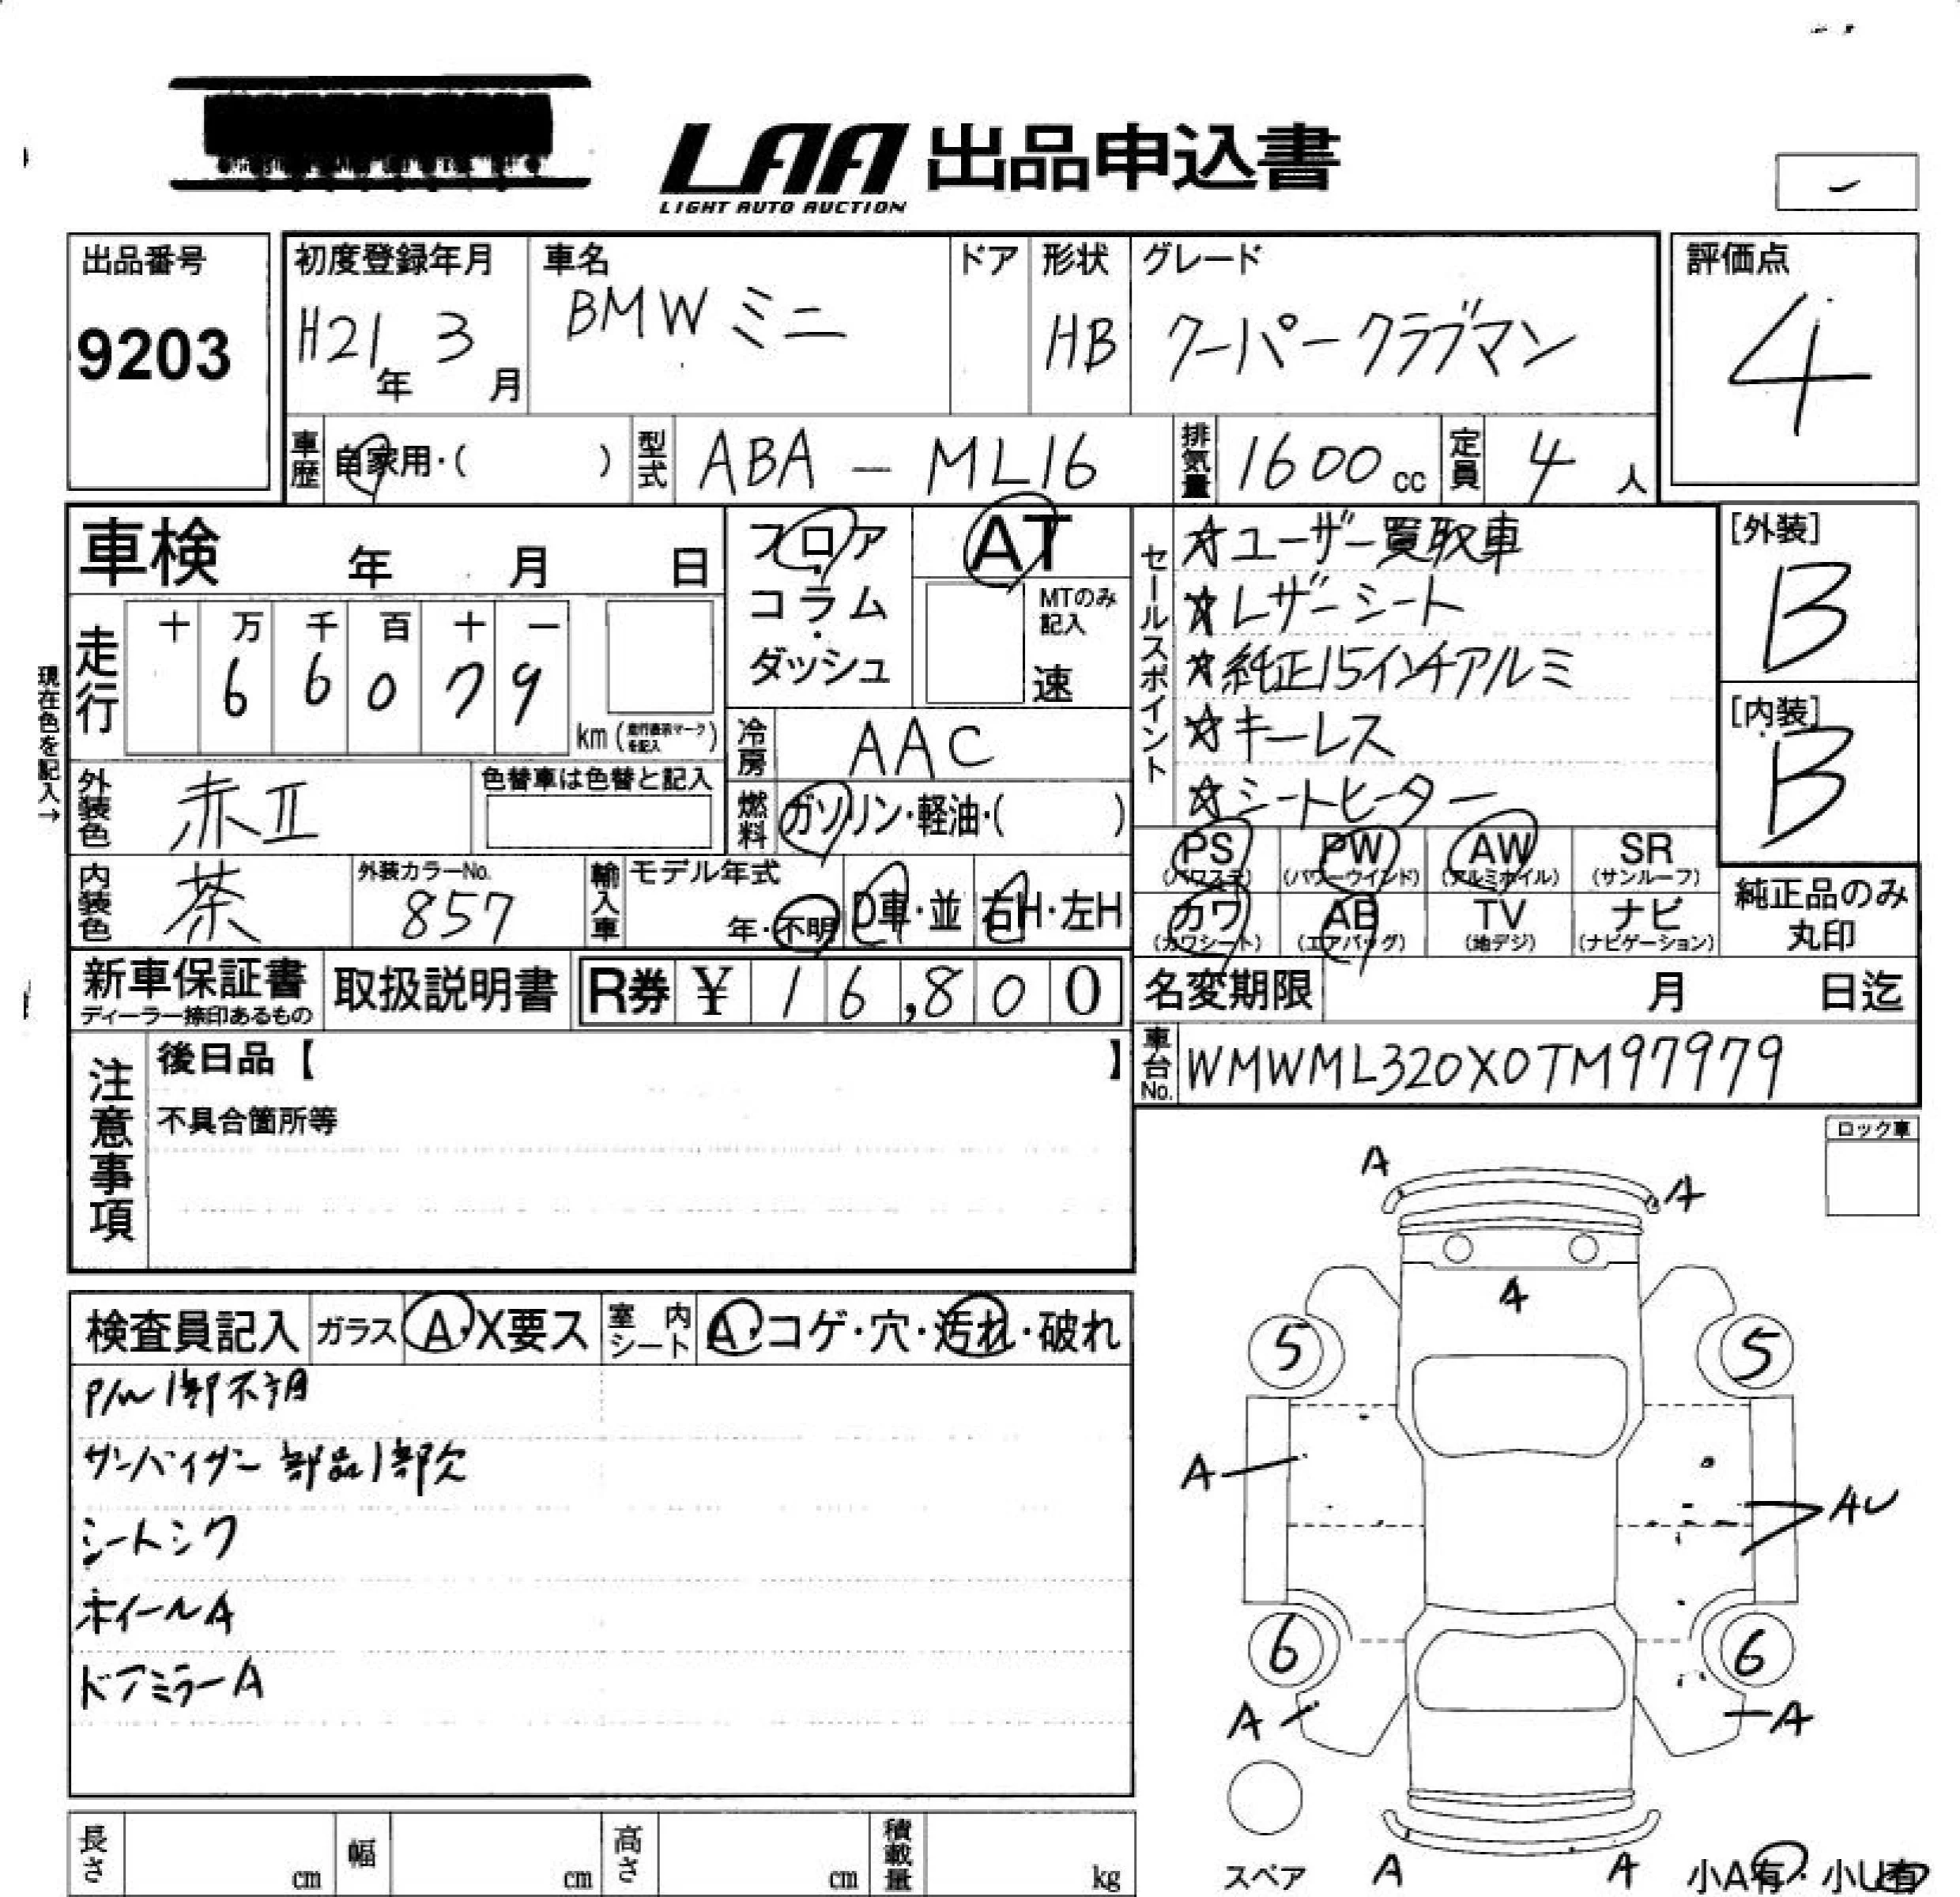 LAA 出品申込書
LIGHT AUTO AUCTION
出品番号
9203
初度登録年月
H21年 3月
車名
BMW ミニ
ドア
形状
HB
グレード
クーパークラブマン
評価点
4
車歴 自家用・( )
型式 ABA － ML16
排気量 1600 cc
定員 4 人
車検 年 月 日
フロア・コラム・ダッシュ
AT
MTのみ記入
速
走行
十 万 千 百 十 一
6 6 0 7 9
km (走行表示マークを記入)
現在色を記入→
外装色 赤II
色替車は色替と記入
冷房 AAC
燃料 ガソリン・軽油・( )
内装色 茶
外装カラーNo.
857
輸入車
モデル年式
年・不明
D車・並
右H・左H
セールスポイント
☆ユーザー買取車
☆レザーシート
☆純正15インチアルミ
☆キーレス
☆シートヒーター
[外装]
B
[内装]
B
PS (パワステ)
PW (パワーウインド)
AW (アルミホイル)
SR (サンルーフ)
カワ (カワシート)
AB (エアバッグ)
TV (地デジ)
ナビ (ナビゲーション)
純正品のみ丸印
新車保証書
ディーラー捺印あるもの
取扱説明書
R券 ¥ 16,800
名変期限 月 日迄
車台No. WMWML320X0TM97979
注意事項
後日品【 】
不具合箇所等
ロック車
検査員記入
ガラス A・X要ス
室内シート A・コゲ・穴・汚れ・破れ
P/W 1部不調
サンバイザー 部品1部欠
シートシワ
ホイールA
ドアミラーA
A
A
4
5
5
A
AU
6
6
A
A
スペア
A
A
小A有・小U有
長さ cm
幅 cm
高さ cm
積載量 kg